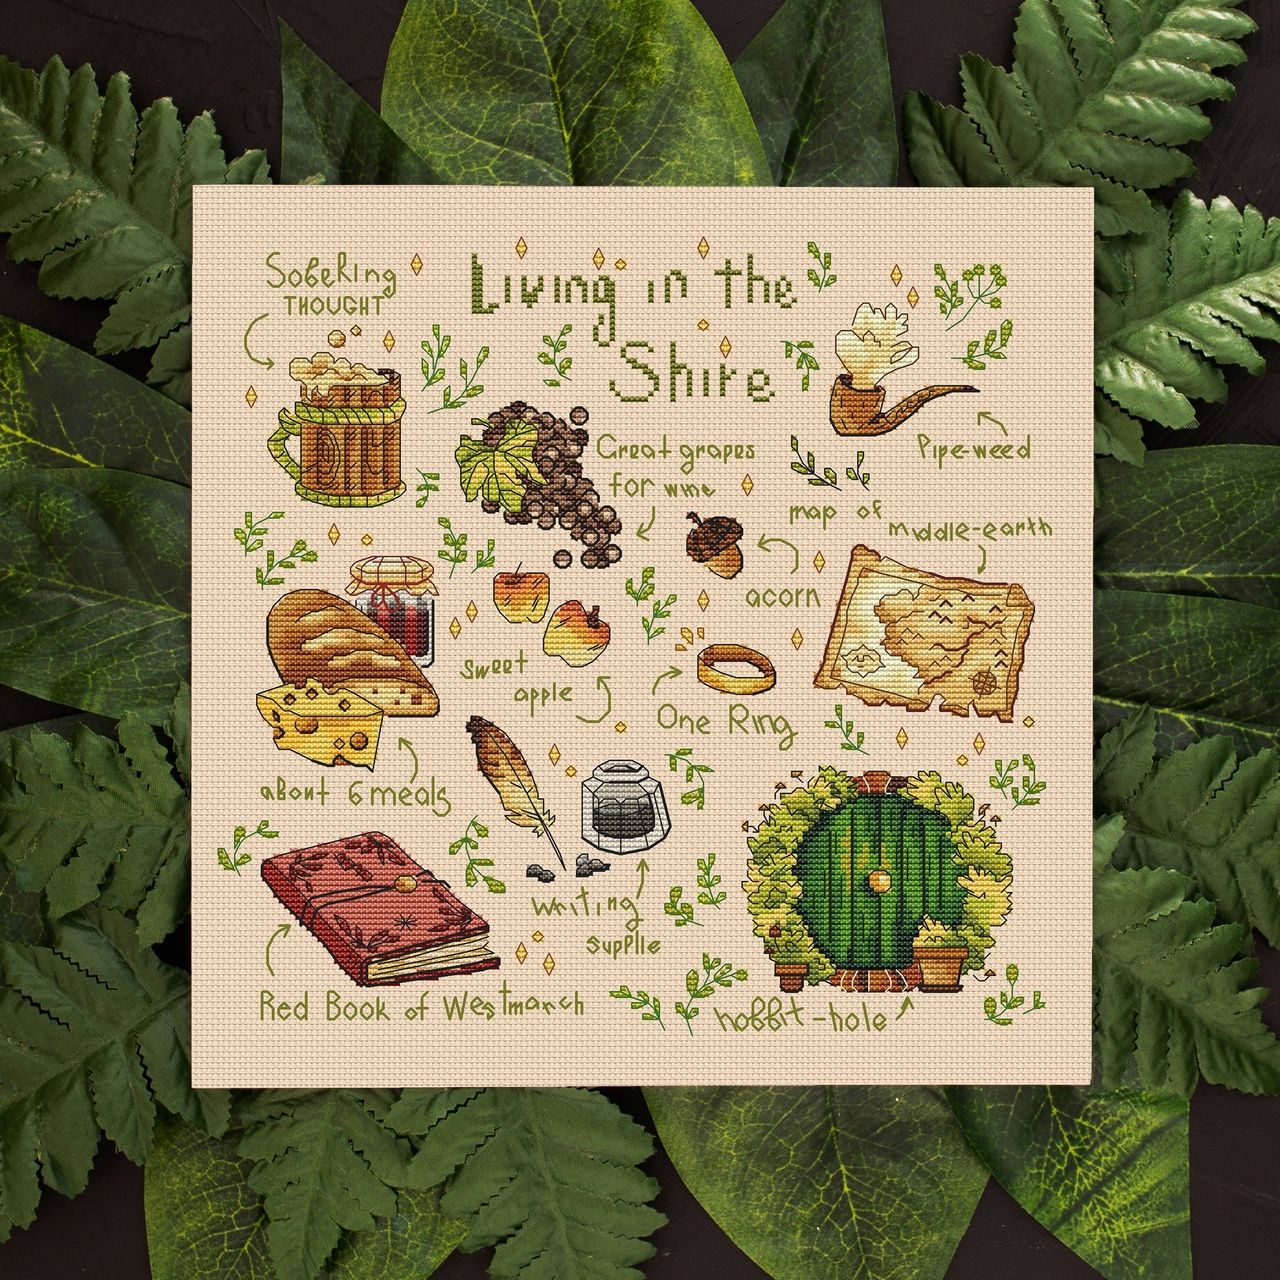 Sobering
THOUGHT
Living in the
Shire
Great grapes
for wine
Pipe-weed
map of
Middle-earth
acorn
sweet
apple
One Ring
about 6 meals
writing
supplie
Red Book of Westmarch
hobbit-hole